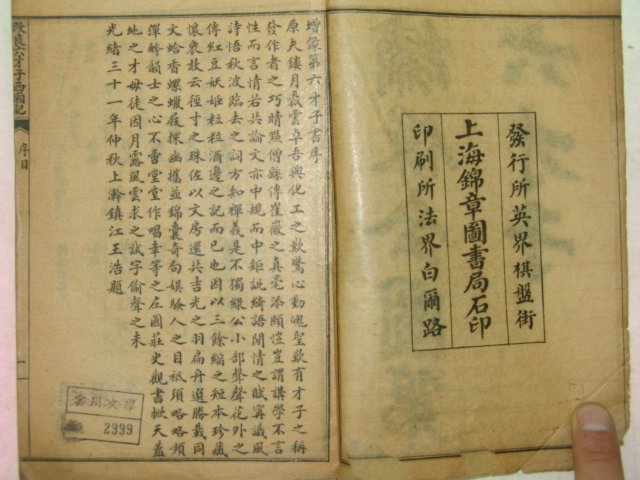 發行所英界棋盤街
上海錦章圖書局石印
印刷所法界白爾路
增像第六才子書序
原夫鏤月裁雲卓吾與化工之歎驚心動魄聖歎有才子之稱
發作者之巧睛點僧繇傳崔巖之真毫添頤愷豈謂講學不言
性而言情若共論文亦中規而中矩訛綺語閒情之賦寗識風
詩悟秋波臨去之詞方知禪義是不獨綠公小部聲聲花外之
傳紅豆妖姬粒粒酒邊之記而已也因以三餘縮之短本珍藏
懷裏敢云徑寸之珠佐以文房還共吉光之羽扁舟選勝載同
文蛤香螺蠟屐探幽攜並錦囊奇句娛騷人之目祗須略略頻
彈醉韻士之心不啻堂堂作唱幸等之左國莊史觀書掀天蓋
地之才毋徒因月露風雲求之試字偷聲之末
光緒三十一年仲秋上澣鎮江王浩題
改良六才子西廂記
序目
一
文庫
2999